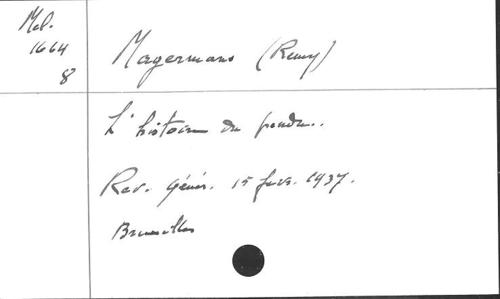 Mél.
1664
8
Magermans (Remy)
L'histoire du pendu..
Rev. génér. 15 févr. 1937.
Bruxelles